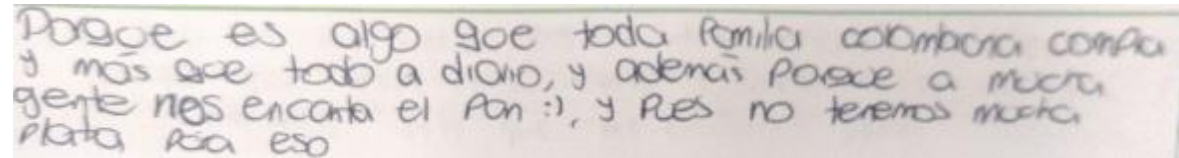 Porque es algo que toda familia colombiana compra
y más que todo a diario, y además porque a mucha
gente nos encanta el pan :), y pues no tenemos mucha
plata para eso